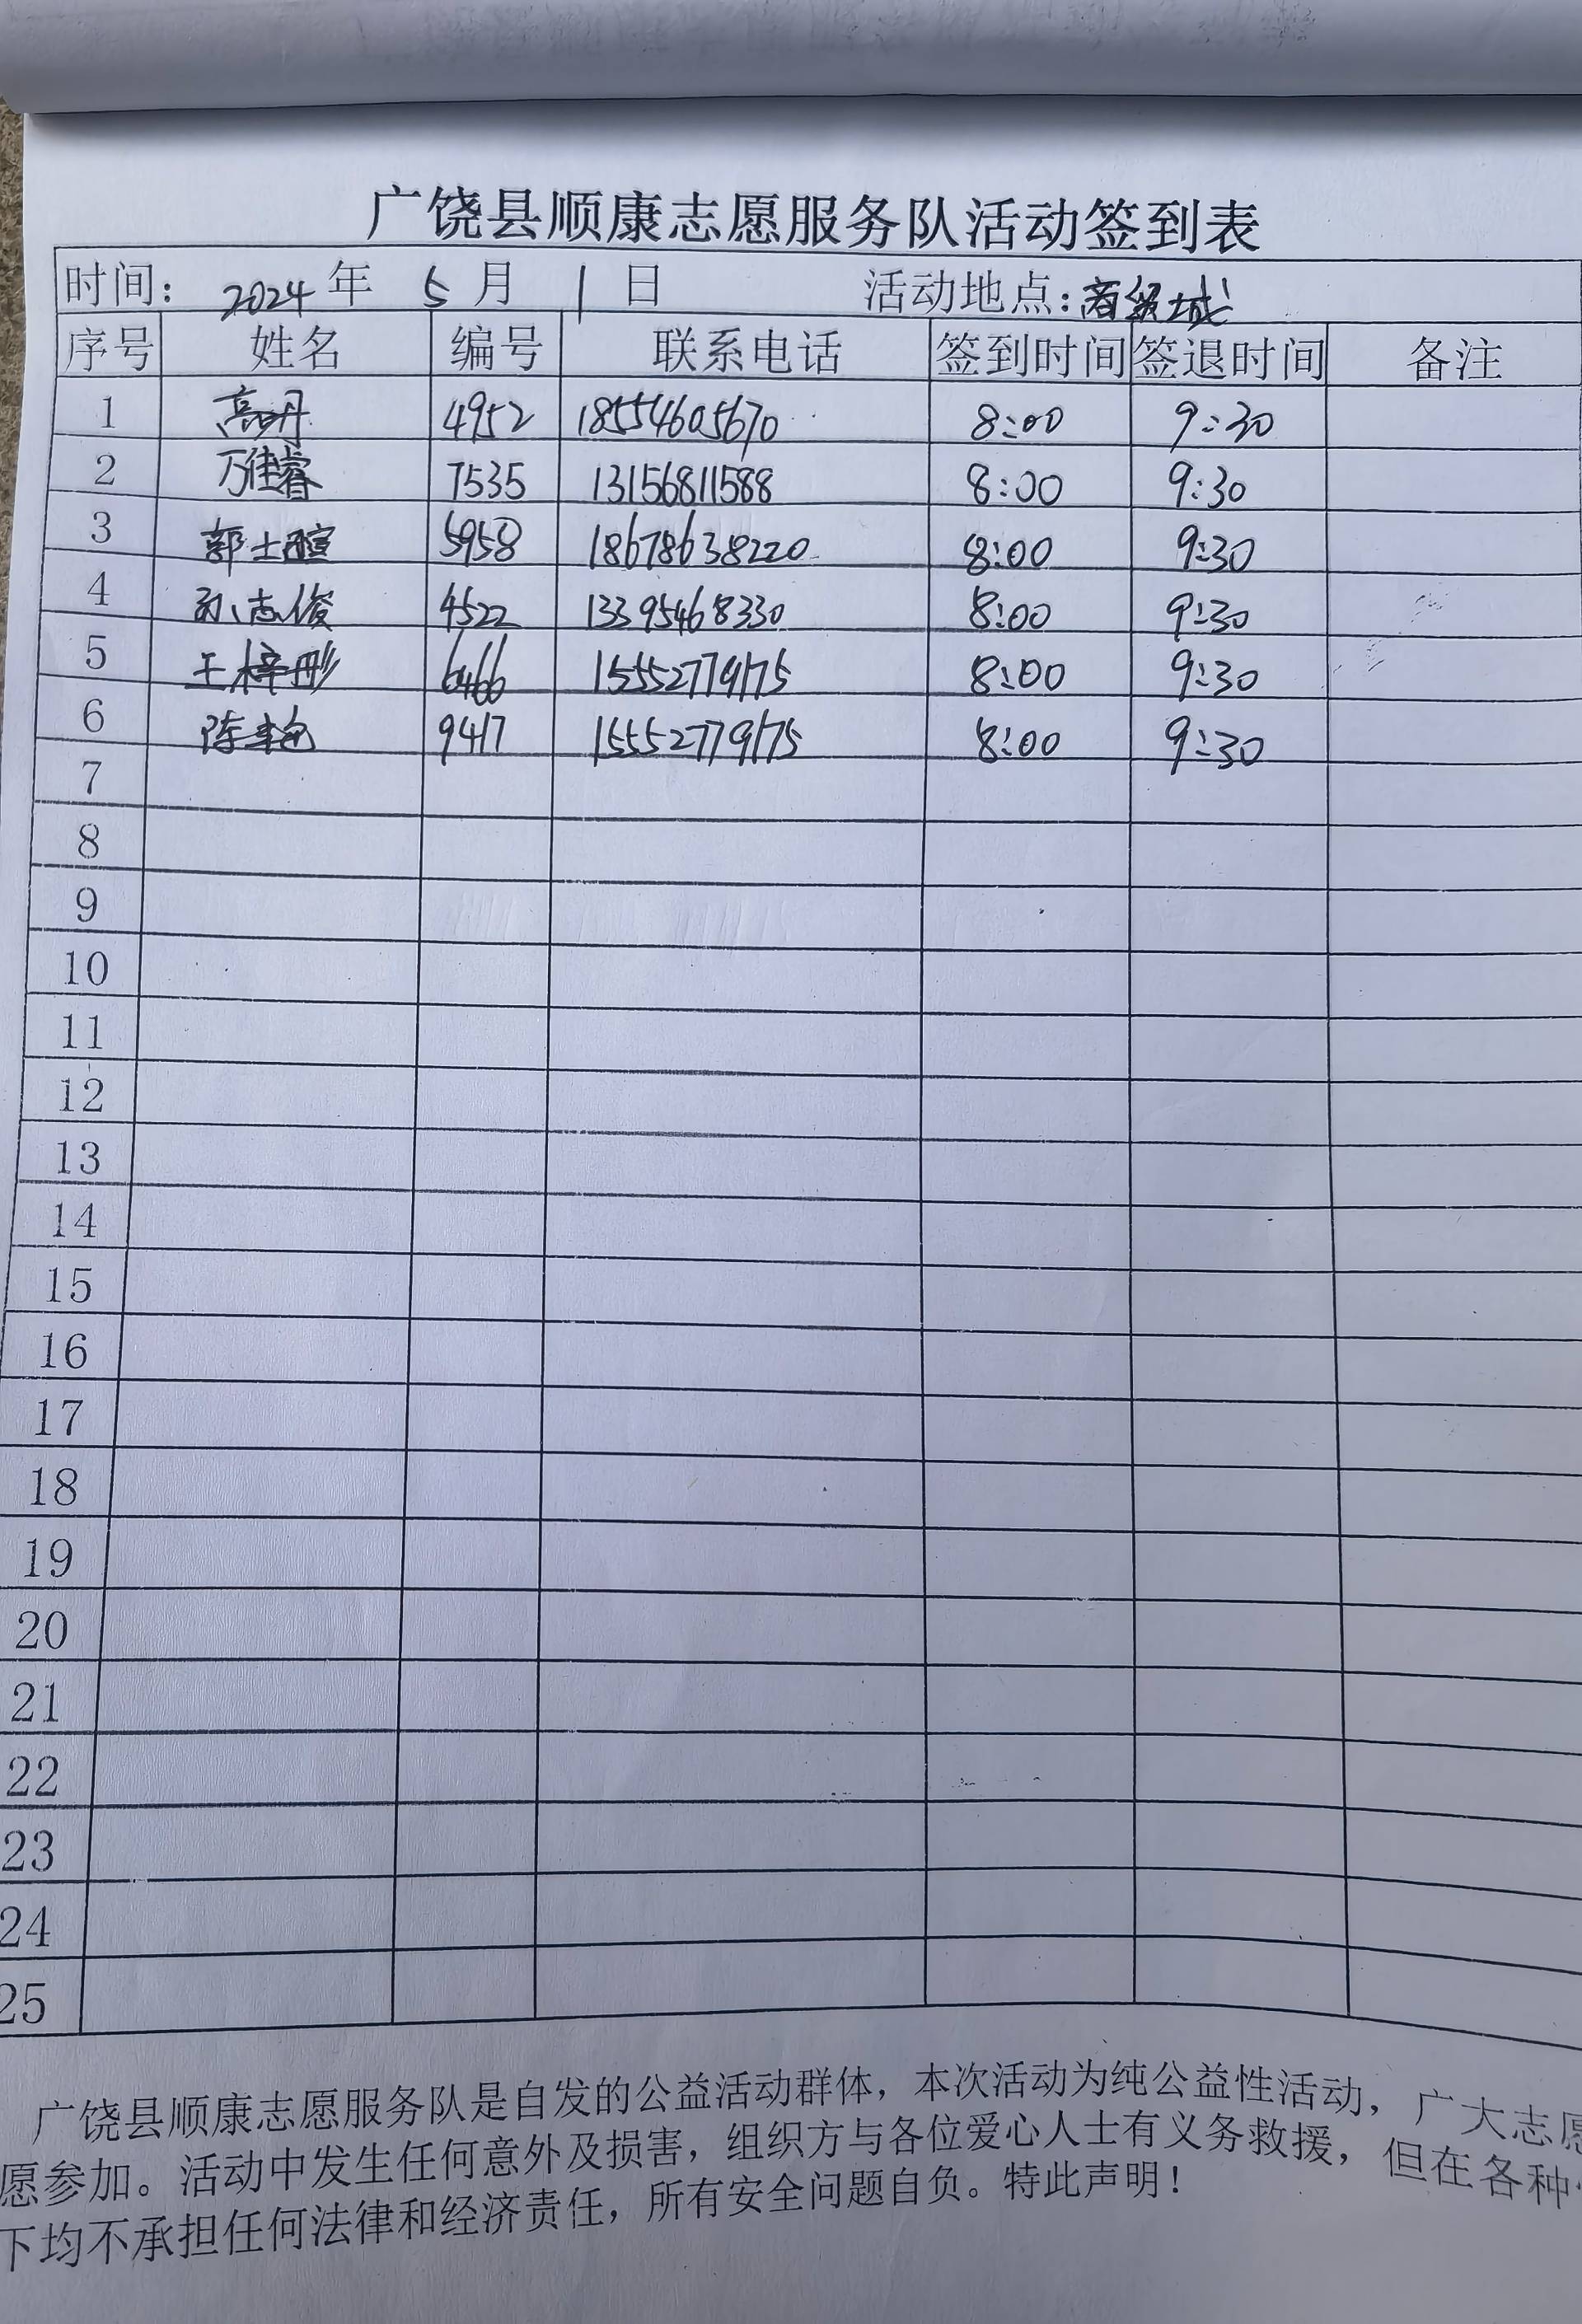 广饶县顺康志愿服务队活动签到表
时间: 2024 年 5 月 1 日 活动地点:商贸城
序号 姓名 编号 联系电话 签到时间 签退时间 备注
1 高丹 4952 18554605670 8:00 9:30
2 万佳睿 7535 13156811588 8:00 9:30
3 郭士 5958 18678638220 8:00 9:30
4 孙志俊 4522 13395468330 8:00 9:30
5 王梓彤 6466 15552779175 8:00 9:30
6 陈 9417 15552779175 8:00 9:30
7
8
9
10
11
12
13
14
15
16
17
18
19
20
21
22
23
24
25
广饶县顺康志愿服务队是自发的公益活动群体，本次活动为纯公益性活动，广大志愿
愿参加。活动中发生任何意外及损害，组织方与各位爱心人士有义务救援，但在各种
下均不承担任何法律和经济责任，所有安全问题自负。特此声明！